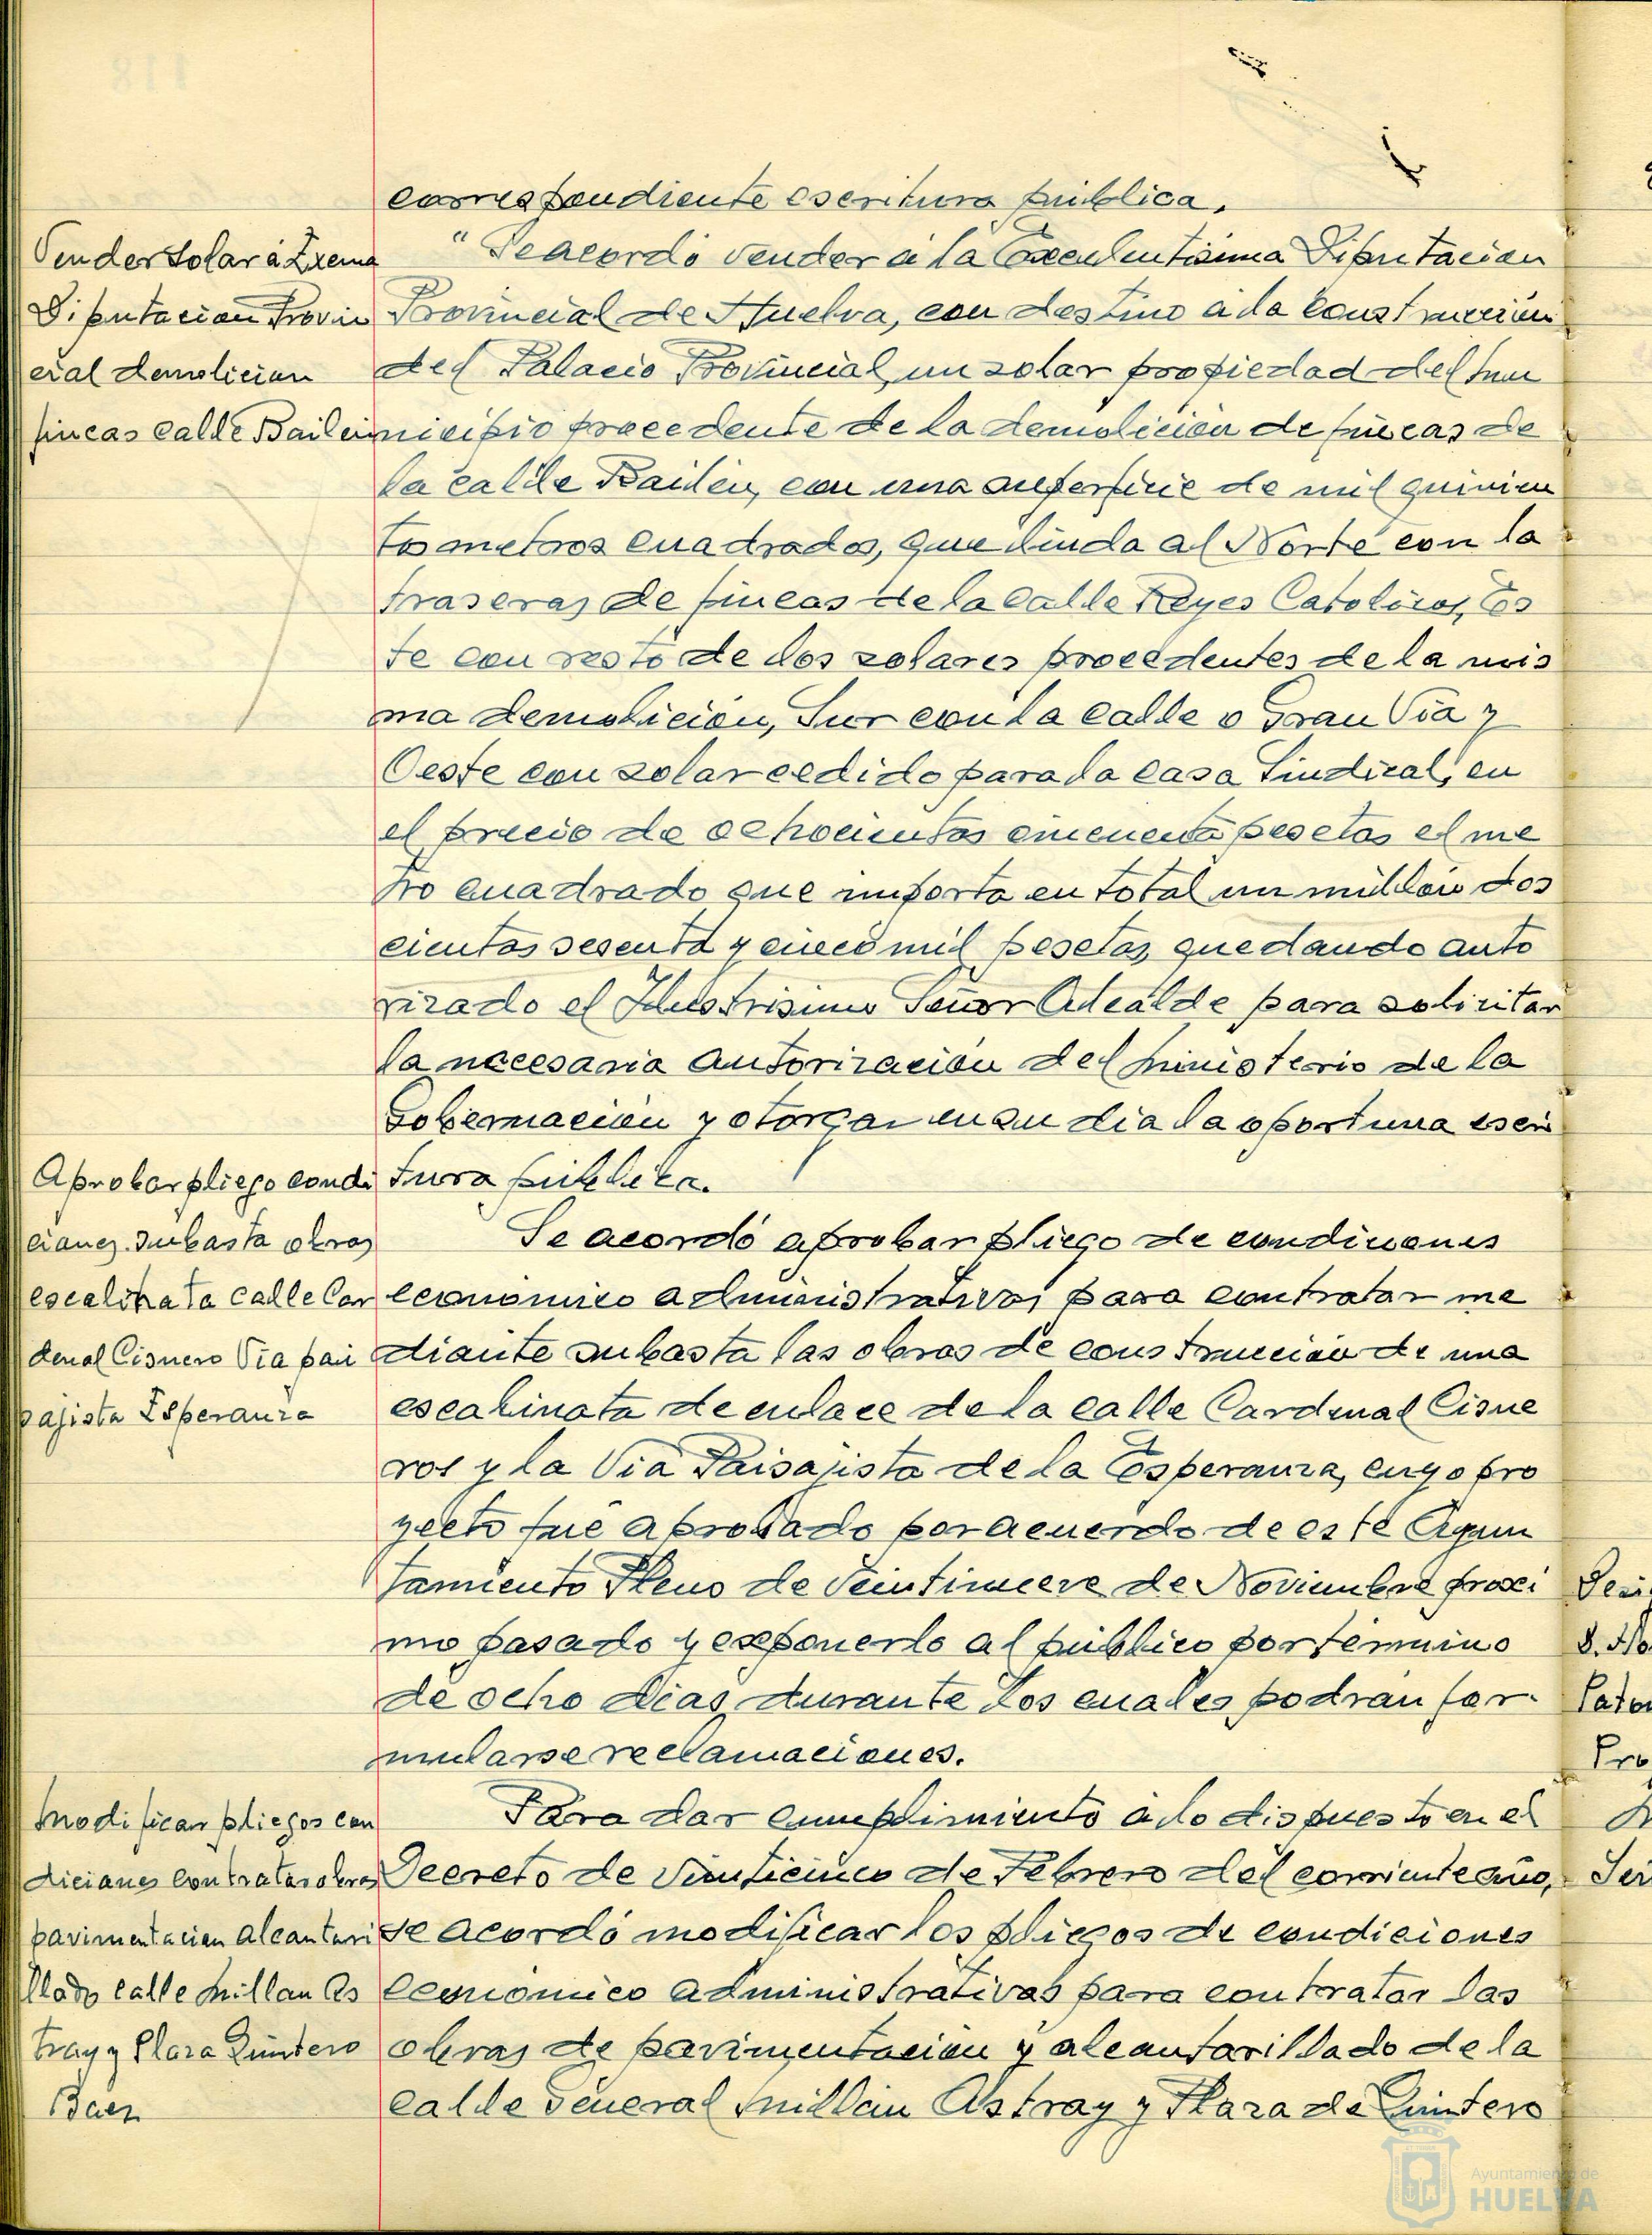 correspondiente escritura pública.
Vender solar á Excma
Diputacion Provin
cial demolicion
fincas calle Bailen
"Se acordó vender á la Excelentisima Diputacion
Provincial de Huelva, con destino a la construcción
del Palacio Provincial, un solar propiedad del mu
nicipio procedente de la demolición de fincas de
la calle Bailén, con una superficie de mil quinien
tos metros cuadrados, que linda al Norte con la
traseras de fincas de la calle Reyes Católicos, Es
te con resto de los solares procedentes de la mis
ma demolición, Sur con la calle o Gran Via y
Oeste con solar cedido para la casa Sindical, en
el precio de ochocientos cincuenta pesetas el me
tro cuadrado que importa en total un millón dos
cientos sesenta y cinco mil pesetas, quedando auto
rizado el Ilustrisimo Señor Alcalde para solicitar
la necesaria autorización del Ministerio de la
Gobernación y otorgar en su dia la oportuna escri
tura pública.
Aprobar pliego condi
ciones subasta obras
escalinata calle Car
denal Cisnero Via pai
pajista Esperanza
Se acordó aprobar pliego de condiciones
económico administrativas para contratar me
diante subasta las obras de construcción de una
escalinata de enlace de la calle Cardenal Cisne
ros y la Via Paisajista de la Esperanza, cuyo pro
yecto fué aprobado por acuerdo de este Ayun
tamiento Pleno de veintinueve de Noviembre proxi
mo pasado y exponerlo al público por término
de ocho dias durante los cuales podrán for-
mularse reclamaciones.
Modificar pliegos con
diciones contratar obras
pavimentacion alcantari
llado calle Millan As
tray y Plaza Quintero
Baez
Para dar cumplimiento á lo dispuesto en el
Decreto de veinticinco de Febrero del corriente año,
se acordó modificar los pliegos de condiciones
económico administrativas para contratar las
obras de pavimentación y alcantarillado de la
calle General Millán Astray y Plaza de Quintero
Ayuntamiento de
HUELVA